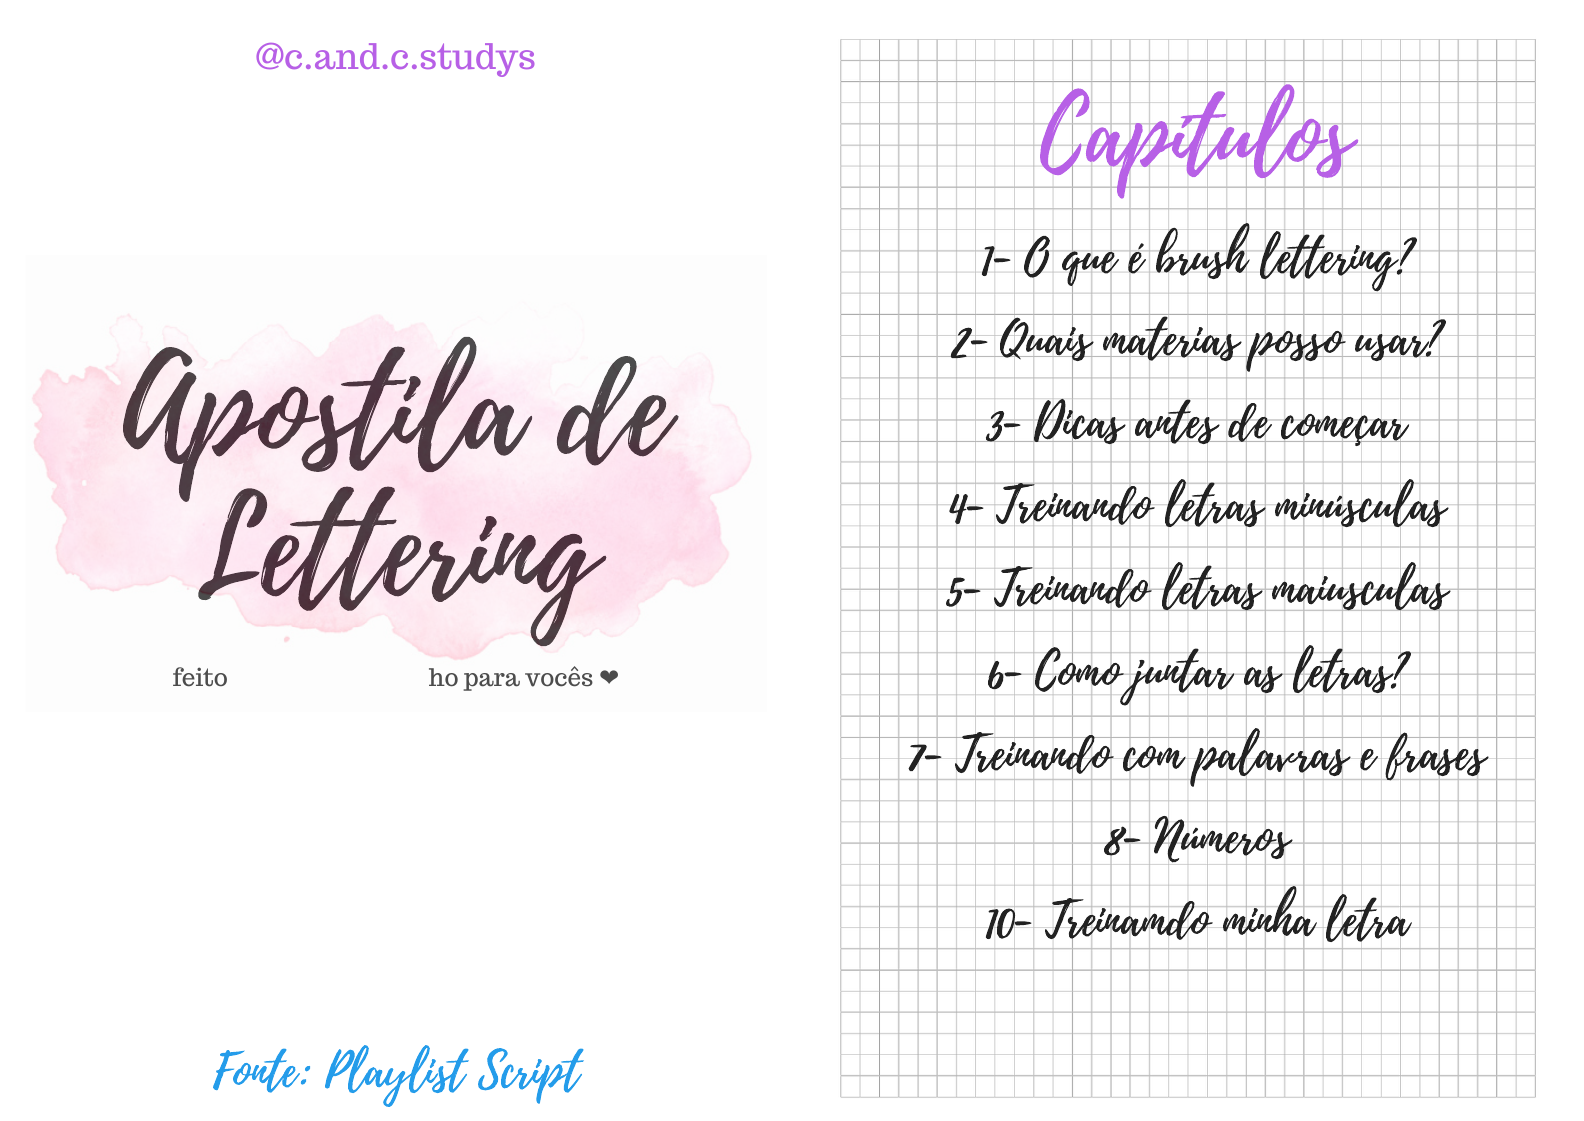 @c.and.c.studys
Apostila de
Lettering
feito ho para vocês ❤
Fonte: Playlist Script
Capítulos
1- O que é brush lettering?
2- Quais materias posso usar?
3- Dicas antes de começar
4- Treinando letras minúsculas
5- Treinando letras maiusculas
6- Como juntar as letras?
7- Treinando com palavras e frases
8- Números
10- Treinamdo minha letra